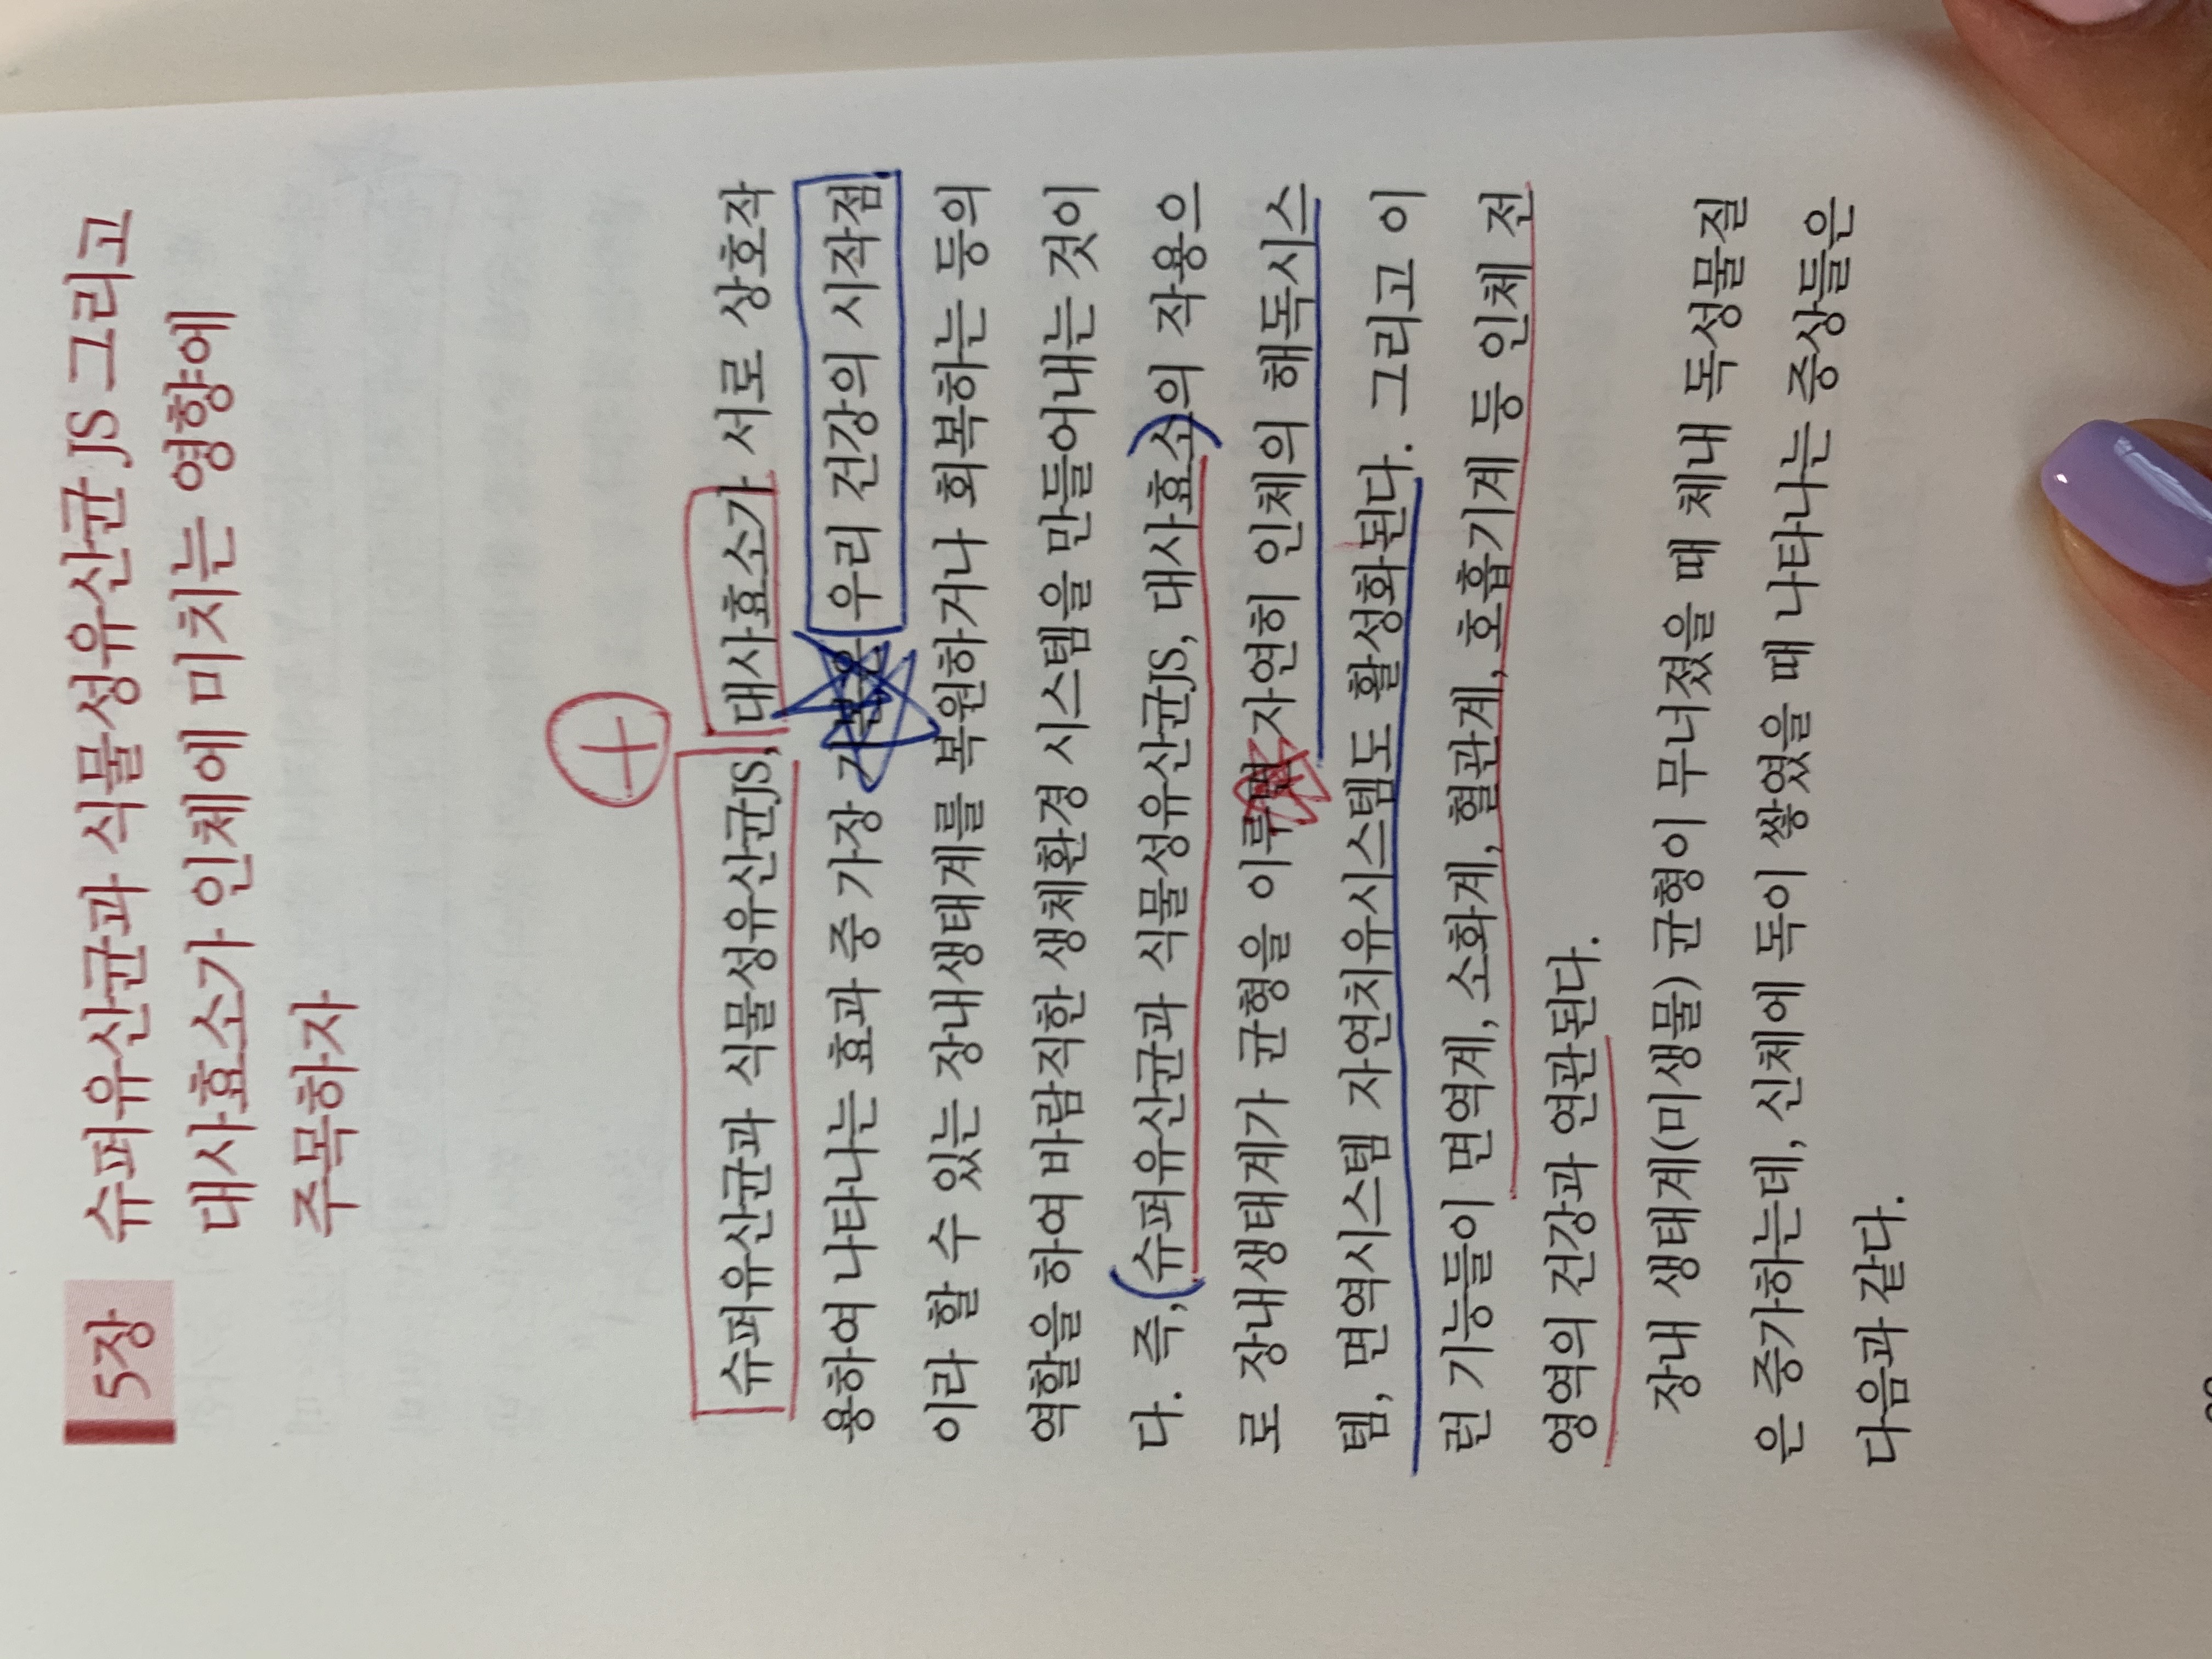 5장 슈퍼유산균과 식물성유산균 JS 그리고
대사효소가 인체에 미치는 영향에
주목하자
+
슈퍼유산균과 식물성유산균JS, 대사효소가 서로 상호작
용하여 나타나는 효과 중 가장 우리 건강의 시작점
이라 할 수 있는 장내생태계를 복원하거나 회복하는 등의
역할을 하여 바람직한 생체환경 시스템을 만들어내는 것이
다. 즉, (슈퍼유산균과 식물성유산균JS, 대사효소)의 작용으
로 장내생태계가 균형을 이루면 자연히 인체의 해독시스
템, 면역시스템 자연치유시스템도 활성화된다. 그리고 이
런 기능들이 면역계, 소화계, 혈관계, 호흡기계 등 인체 전
영역의 건강과 연관된다.
장내 생태계(미생물) 균형이 무너졌을 때 체내 독성물질
은 증가하는데, 신체에 독이 쌓였을 때 나타나는 증상들은
다음과 같다.